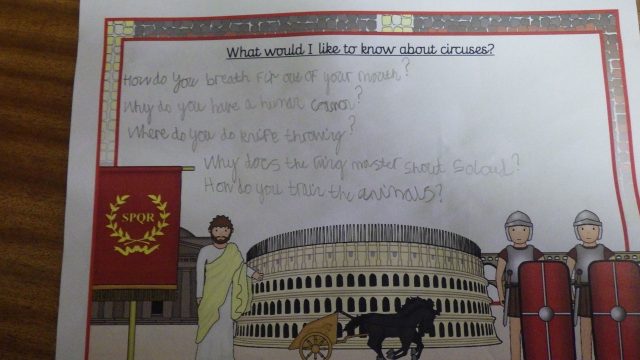 What would I like to know about circuses?
How do you breath fir out of your mouth?
Why do you have a human canon?
Where do you do knife throwing?
Why does the ring master shout so loud?
How do you train the animals?
SPQR